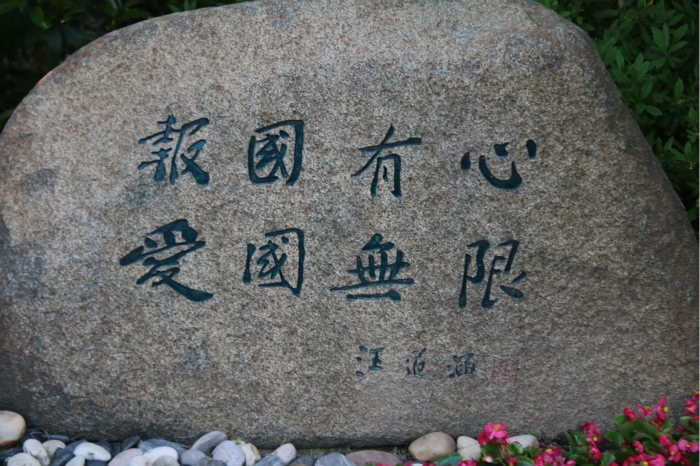 報國有心
愛國無限
汪道涵